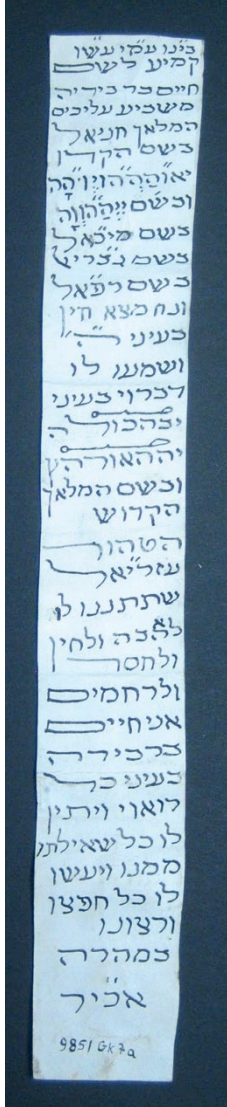 בינו עמי עשו
קמיע לשם
חיים בר ביריה
משביע עליכם
המלאך חניאל
בשם הקדו
ובשם
בשם מיכאל
בשם גבריל
בשם רפאל
ונח מצא חין
בעיני
ושמעו לו
דברוי בעיני
ובשם המלאך
הקדוש
הטהור
עזריאל
שתתננו לו
לאהבה ולחין
ולחסד
ולרחמים
אני חיים
בר בירה
בעיני כל
רואוי ויתין
לו כל שאילתו
ממנו ויעשו
לו כל חפצו
ורצונו
במהרה
אכיר
9851 GK7a